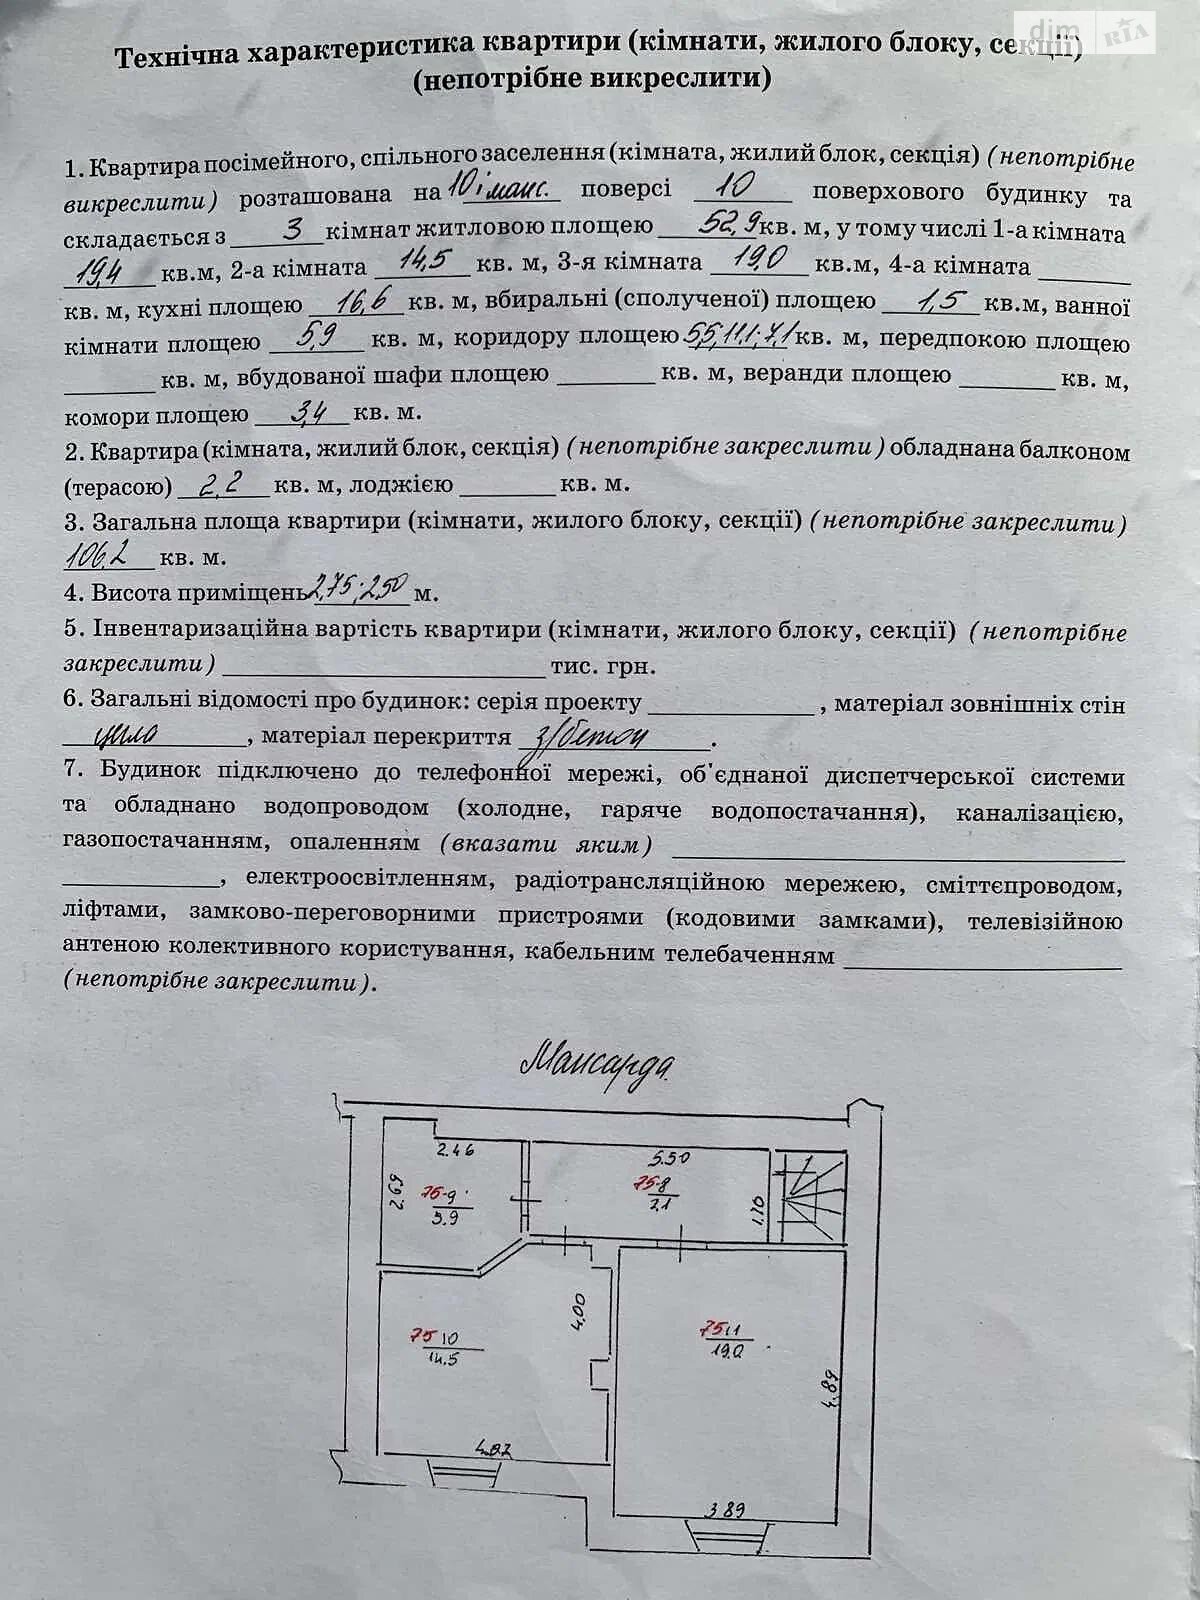 dim RIA
Технічна характеристика квартири (кімнати, жилого блоку, секції)
(непотрібне викреслити)
1. Квартира посімейного, спільного заселення (кімната, жилий блок, секція) (непотрібне
викреслити) розташована на 10 і манс. поверсі 10 поверхового будинку та
складається з 3 кімнат житловою площею 52,9 кв. м, у тому числі 1-а кімната
19,4 кв.м, 2-а кімната 14,5 кв. м, 3-я кімната 19,0 кв.м, 4-а кімната
кв. м, кухні площею 16,6 кв. м, вбиральні (сполученої) площею 1,5 кв.м, ванної
кімнати площею 5,9 кв. м, коридору площею 5,5; 11,1; 7,1 кв. м, передпокою площею
кв. м, вбудованої шафи площею кв. м, веранди площею кв. м,
комори площею 3,4 кв. м.
2. Квартира (кімната, жилий блок, секція) (непотрібне закреслити) обладнана балконом
(терасою) 2,2 кв. м, лоджією кв. м.
3. Загальна площа квартири (кімнати, жилого блоку, секції) (непотрібне закреслити)
106,2 кв. м.
4. Висота приміщень 2,75; 2,50 м.
5. Інвентаризаційна вартість квартири (кімнати, жилого блоку, секції) (непотрібне
закреслити) тис. грн.
6. Загальні відомості про будинок: серія проекту , матеріал зовнішніх стін
цегла , матеріал перекриття з/бетон .
7. Будинок підключено до телефонної мережі, об'єднаної диспетчерської системи
та обладнано водопроводом (холодне, гаряче водопостачання), каналізацією,
газопостачанням, опаленням (вказати яким)
, електроосвітленням, радіотрансляційною мережею, сміттєпроводом,
ліфтами, замково-переговорними пристроями (кодовими замками), телевізійною
антеною колективного користування, кабельним телебаченням
(непотрібне закреслити).
Мансарда
2.46
5.50
2.69
75-9
5.9
75-8
7.1
1.70
4,00
75 10
14.5
75 11
19.0
4.89
4.02
3.89